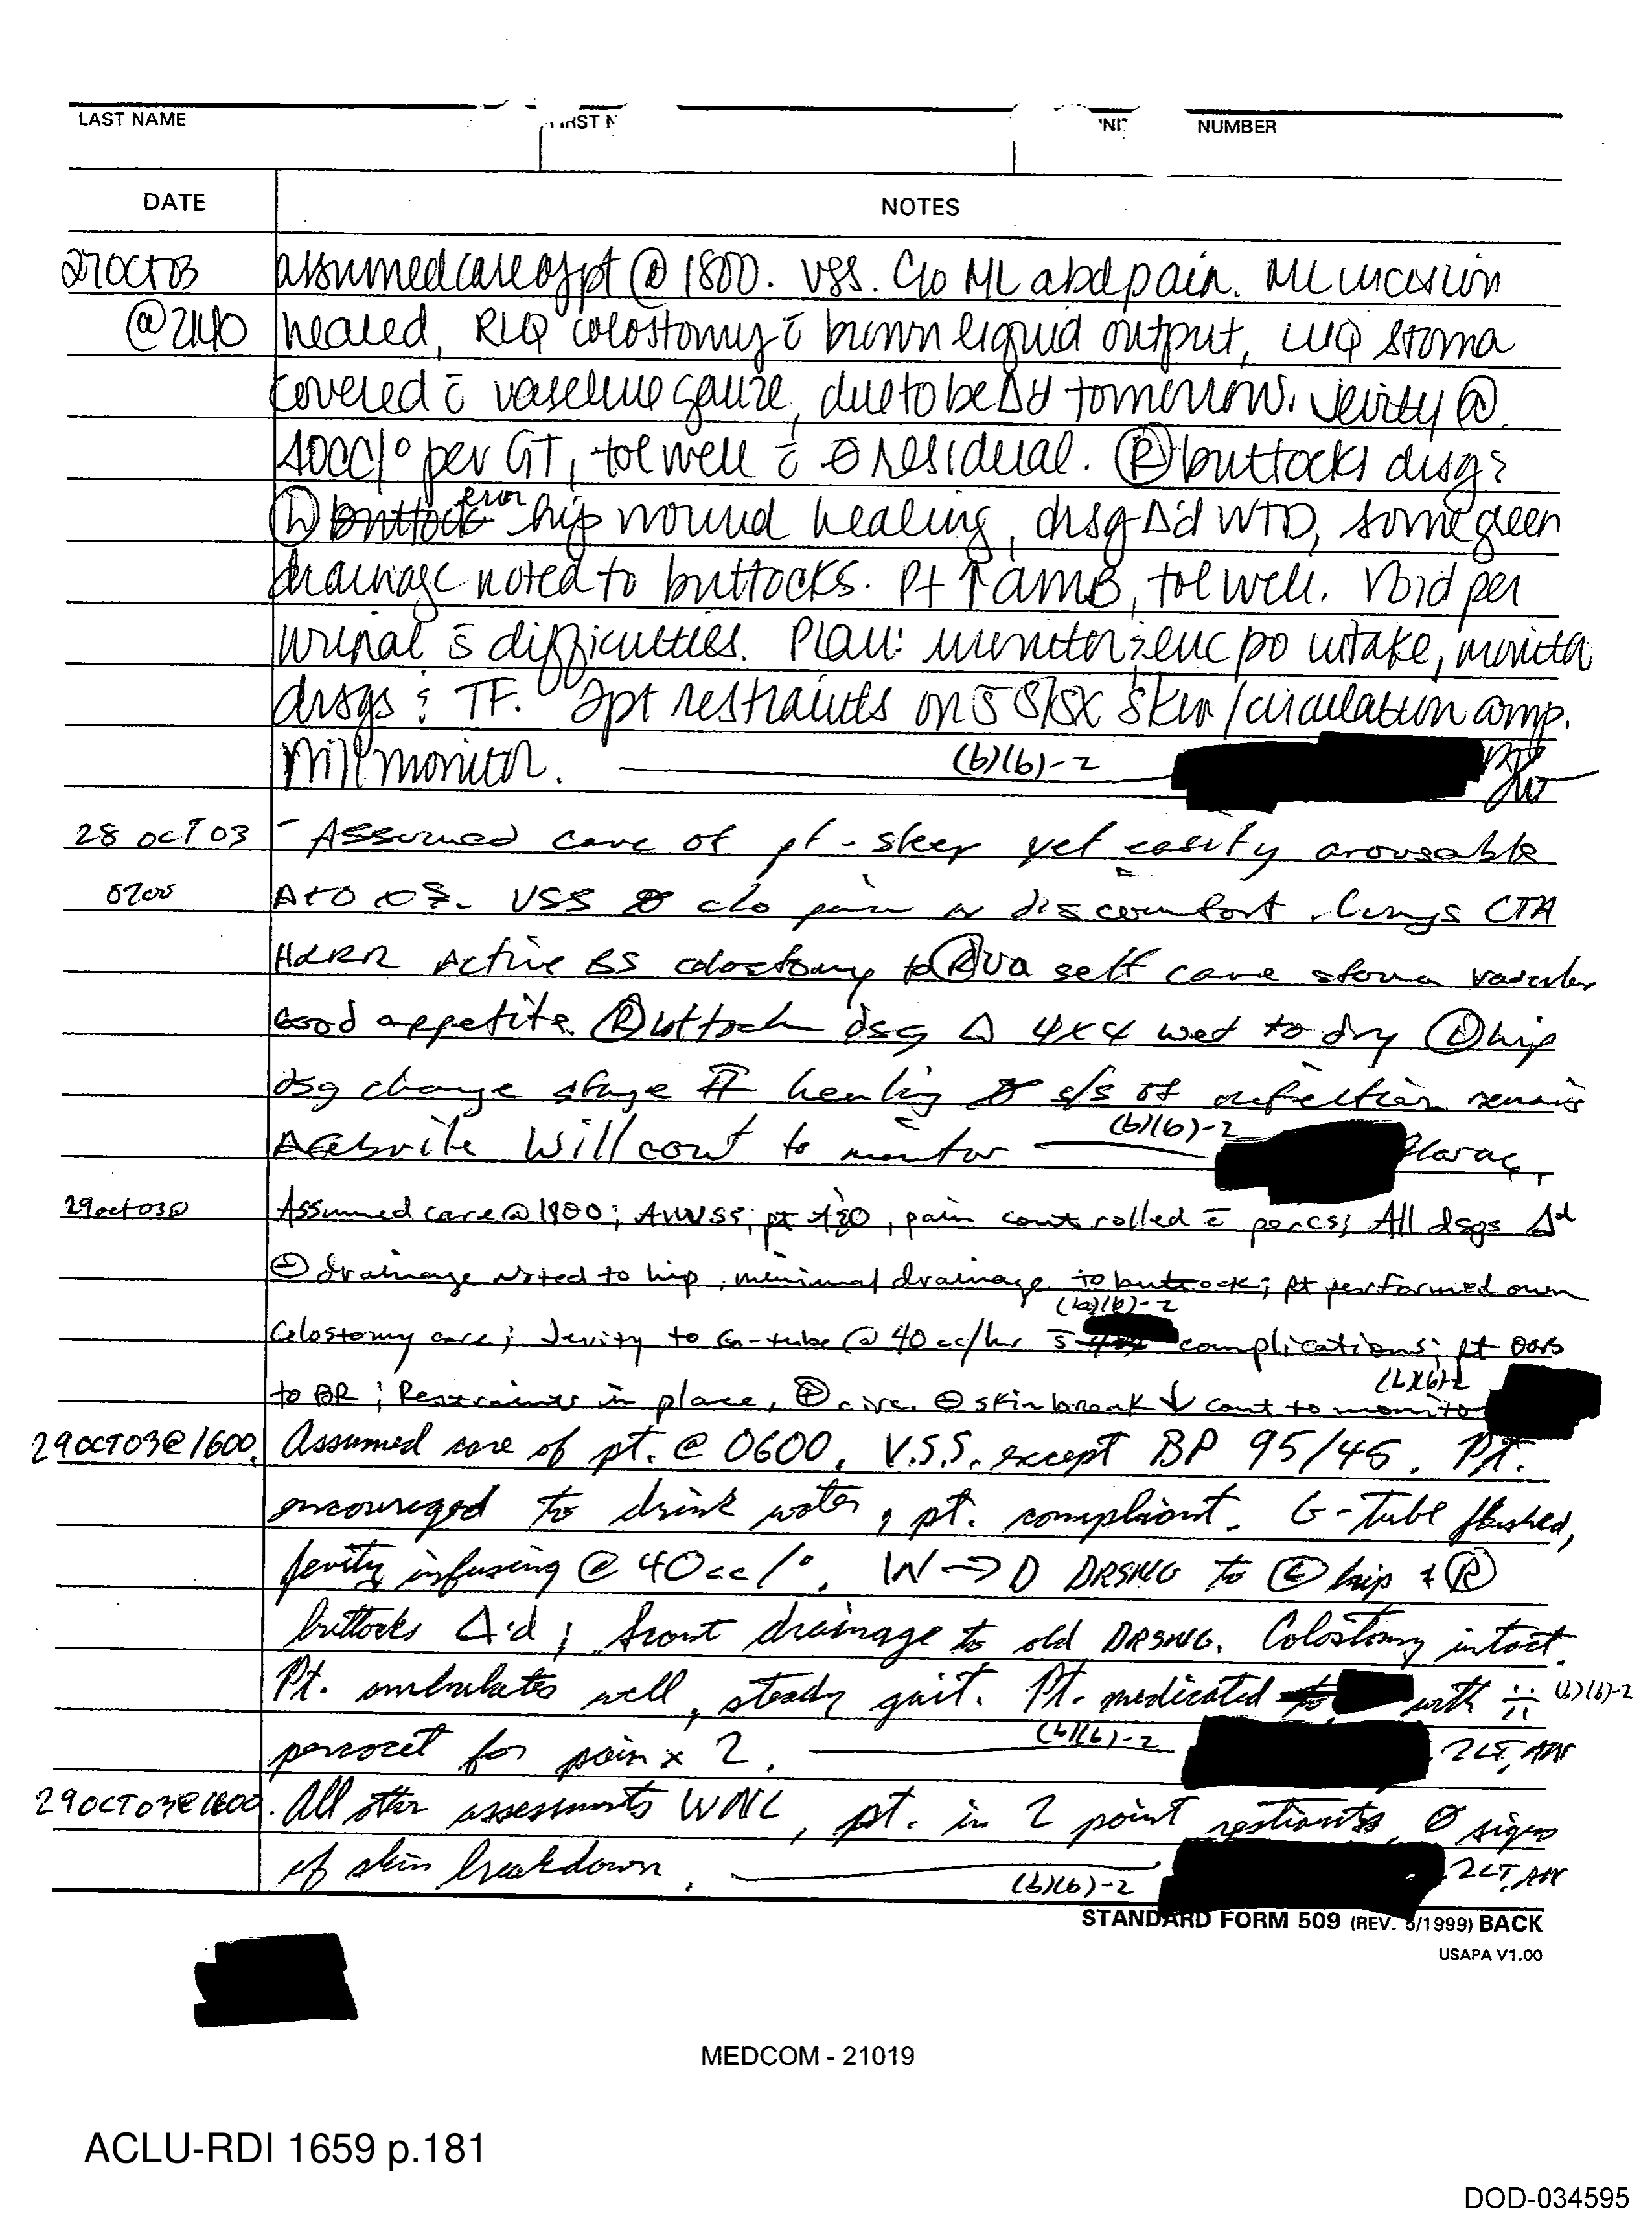 LAST NAME
NUMBER
DATE NOTES
27 OCT 03 assumed care of pt @ 1800. VSS. C/o ML abd pain. ML incision
@ 2140 healed, RLQ colostomy c̄ brown liquid output, LUQ stoma
covered c̄ vaseline gauze, due to be Δ'd tomorrow. Jevity @
40cc/° per GT, tol well c̄ ∅ residual. Ⓡ buttocks drsg &
Ⓛ buttock error hip wound healing, drsg Δ'd WTD, some green
drainage noted to buttocks. Pt ↑ amb, tol well. Void per
urinal s̄ difficulties. Plan: monitor & enc po intake, monitor
drsgs & TF. 2pt restraints on s̄ S/Sx skin/circulation comp.
Will monitor. (b)(6)-2
28 OCT 03 - Assumed care of pt - sleep yet easily arousable
0700 A+O x3. VSS ∅ c/o pain or discomfort. Lungs CTA
HRRR Active BS colostomy to Ⓡ self care stoma
Good appetite. Ⓡ buttock dsg Δ 4x4 wet to dry Ⓛ hip
dsg change stage II healing ∅ s/s of infection remains
Afebrile Will cont to monitor (b)(6)-2
29 oct 03 @ Assumed care @ 1800; AVVSS; pt A&O, pain controlled c̄ percs; All dsgs Δd
⊖ drainage noted to hip, minimal drainage to buttock; pt performed own
(b)(6)-2
Colostomy care; Jevity to G-tube @ 40 cc/hr s̄ complications; pt OOB
(b)(6)-2
to BR; Restraints in place, ⊕ circ. ⊖ skin break ↓ cont to monitor
29 OCT 03 @ 1600. Assumed care of pt. @ 0600. V.S.S. except BP 95/45. Pt.
encouraged to drink water, pt. compliant. G-Tube flushed,
jevity infusing @ 40cc/°. W→D DRSNG to Ⓛ hip & Ⓡ
buttocks Δ'd; scant drainage to old DRSNG. Colostomy intact.
Pt. ambulates well, steady gait. Pt. medicated to with ii (b)(6)-2
percocet for pain x 2. (b)(6)-2 2LT, AN
29 OCT 03 @ 1800. All other assessments WNL, pt. in 2 point restraints, ∅ signs
of skin breakdown. (b)(6)-2 2LT, AN
STANDARD FORM 509 (REV. 5/1999) BACK
USAPA V1.00
MEDCOM - 21019
ACLU-RDI 1659 p.181
DOD-034595